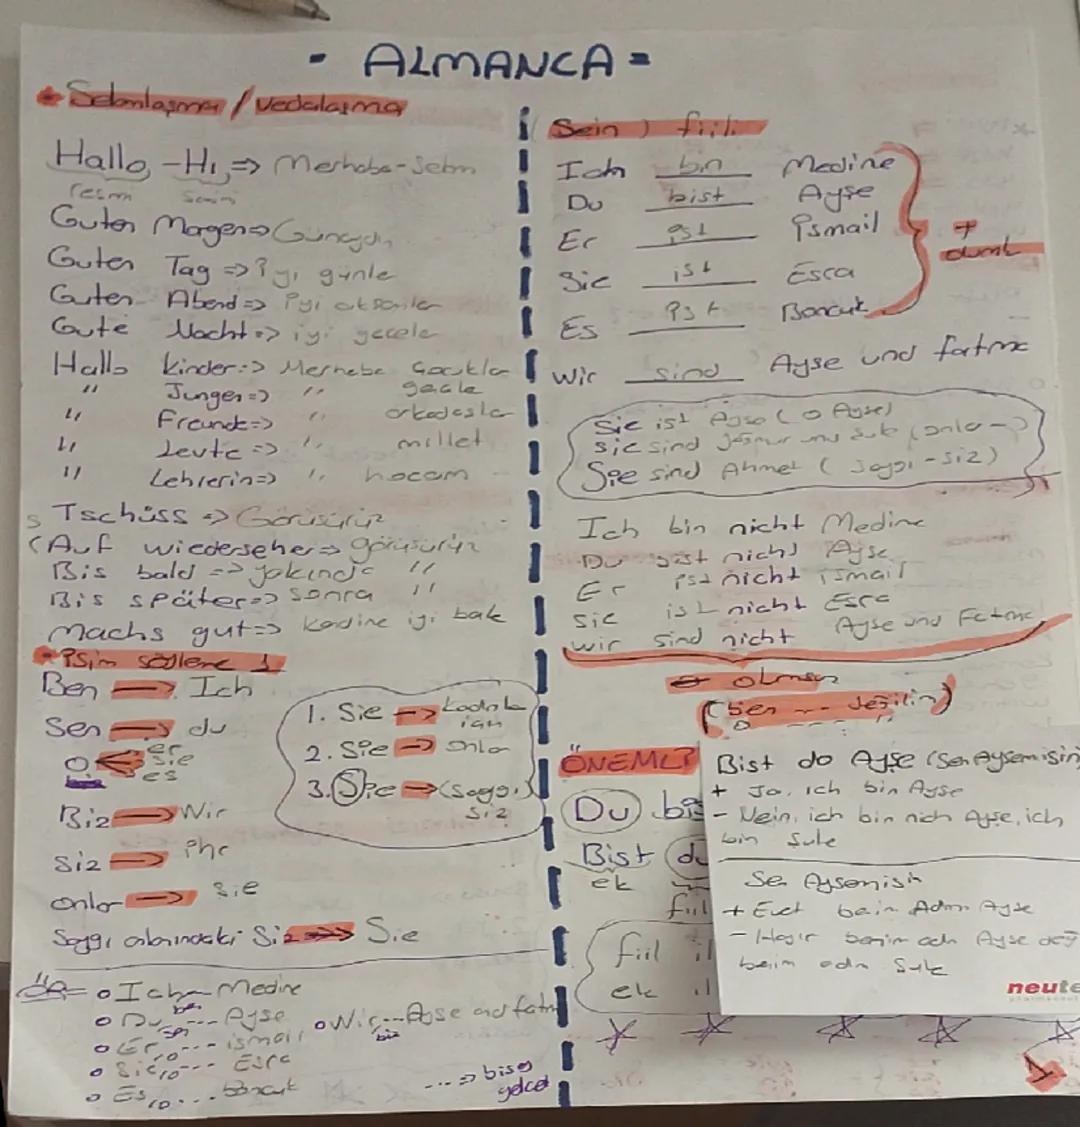 - ALMANCA =
Selamlaşma / vedalaşma
Hallo, - Hi, => Merhaba - Selam
resmi samimi
Guten Morgen => Günaydın
Guten Tag => İyi günle
Guten Abend => İyi akşamlar
Gute Nacht => iyi gecele
Hallo kinder => Merhaba Çocukla
" Junger => " gençle
" Freunde => " arkadaşla
" Leute => " millet
" Lehrerin => " hocam
s Tschüss => Görüşürüz
(Auf wiedersehen => görüşürüz
Bis bald => yakında "
Bis später => sonra "
Machs gut => kendine iyi bak
* İsim 1
Ben → Ich
Sen → du
O er
sie
es
Biz → Wir
Siz → ihr
onlar → sie
Saygı anlamındaki Siz → Sie
1. Sie → kadın
için
2. Sie → onlar
3. Sie → (saygı)
siz
ör = o Ich Medine
ben
o Du --- Ayşe
sen
o Er --- ismail
o
o Sie --- Esra
o
o Es ... Boncuk
o
o Wir --- Ayşe und fatm
biz
... => bişey
gelcek
(Sein) fiili
Ich bin Medine
Du bist Ayşe
Er ist İsmail
Sie ist Esra
Es ist Boncuk
+
duml
Wir sind Ayşe und fatma
Sie ist Ayşe (O Ayşe)
Sie sind und Şule (onlar -)
Sie sind Ahmet (Saygı - siz)
Ich bin nicht Medine
Du bist nicht Ayşe
Er ist nicht ismail
Sie ist nicht Esra
wir sind nicht Ayşe und Fatma
olmsn
(ben --- değilim)
o - - - - "
ÖNEMLİ
Du bis
Bist du
ek
fiil
fiil il
ek il
Bist do Ayşe (Sen Aysemisin
+ Ja, ich bin Ayşe
- Nein, ich bin nich Ayşe, ich
bin Şule
Sen Aysemisin
+ Evet benim Adım Ayşe
- Hayır benim adı Ayşe değ
benim adım Şule
neute
1